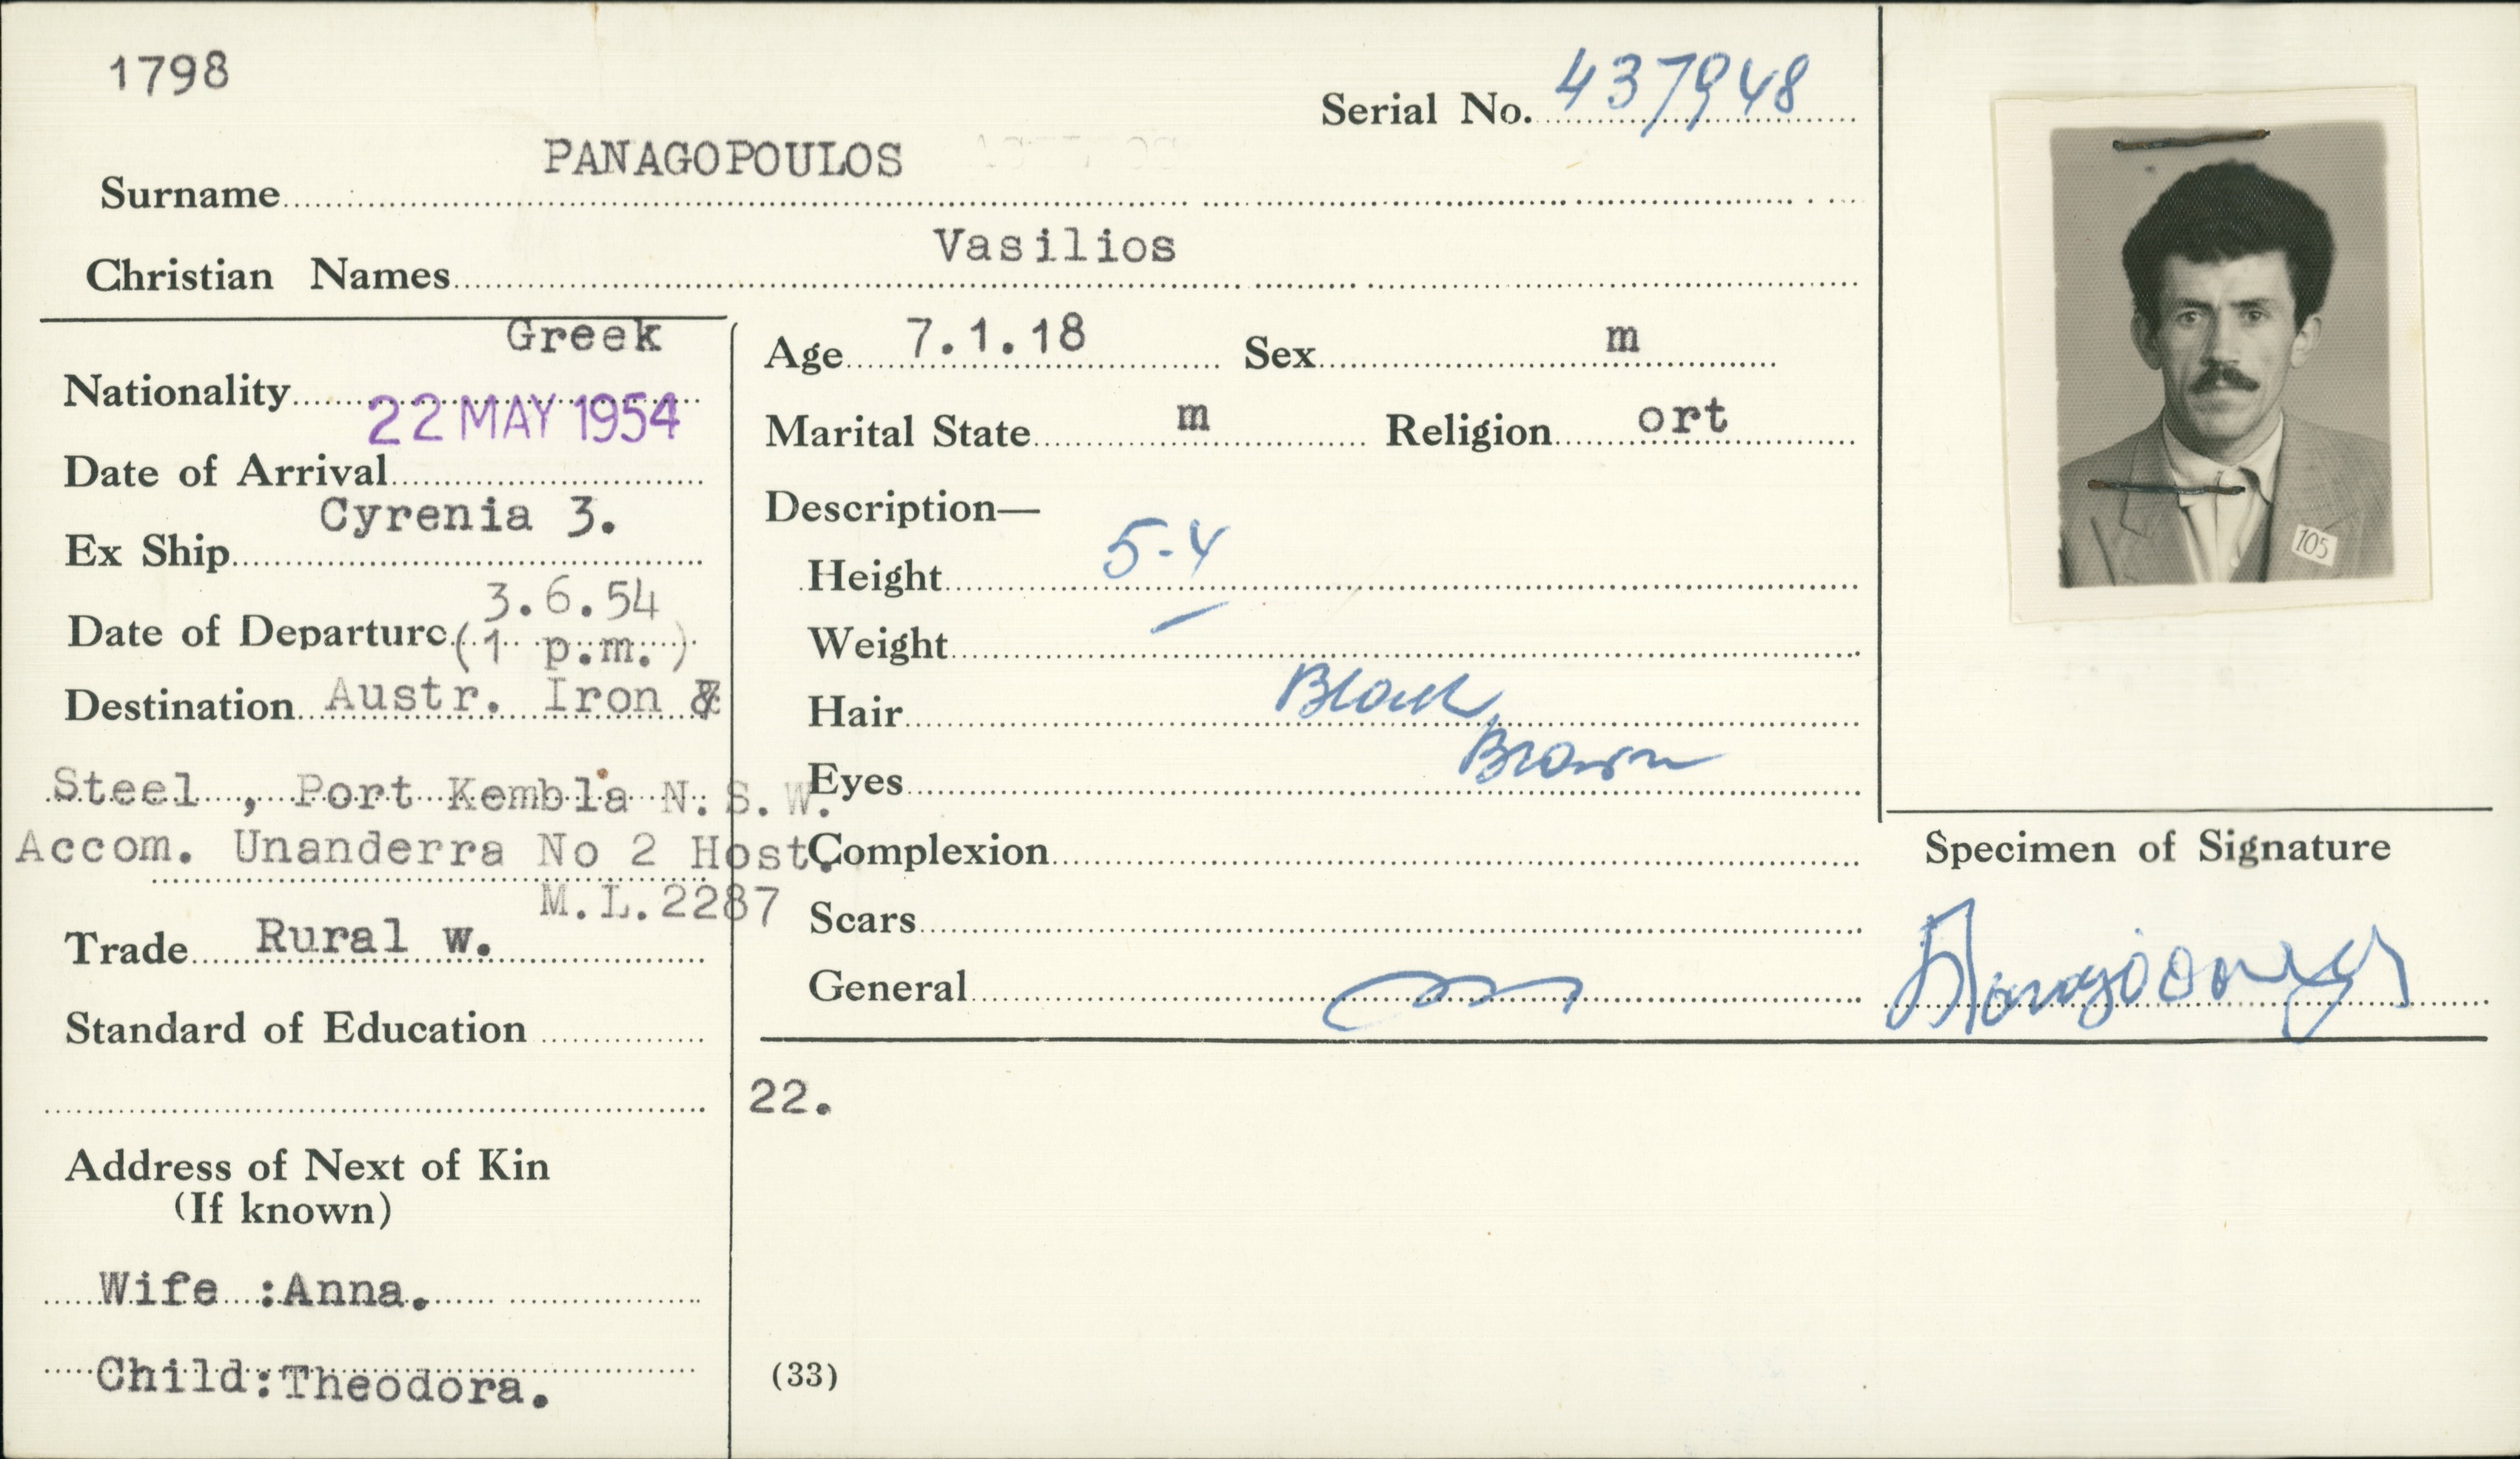 1798
Serial No. 437948
Surname PANAGOPOULOS
Christian Names Vasilios
Nationality Greek
Date of Arrival 22 MAY 1954
Ex Ship Cyrenia 3.
Date of Departure 3.6.54
(1 p.m.)
Destination Austr. Iron &
Steel , Port Kembla N.S.W.
Accom. Unanderra No 2 Host.
M.L.2287
Trade Rural w.
Standard of Education
Address of Next of Kin
(If known)
Wife :Anna.
Child:Theodora.
Age 7.1.18 Sex m
Marital State m Religion ort
Description—
Height 5-4
Weight —
Hair Black
Eyes Brown
Complexion
Scars
General
22.
(33)
105
Specimen of Signature